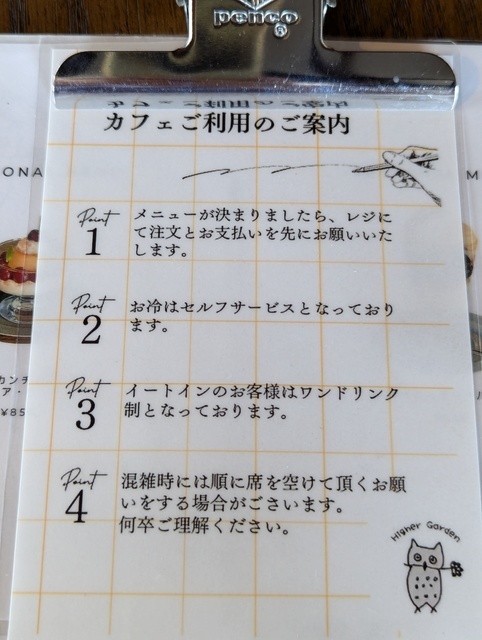 penco®
カフェご利用のご案内
ONA
M
Point
1
メニューが決まりましたら、レジに
て注文とお支払いを先にお願いいた
します。
Point
2
お冷はセルフサービスとなっており
ます。
Point
3
イートインのお客様はワンドリンク
制となっております。
カンテ
ア・
¥85
Point
4
混雑時には順に席を空けて頂くお願
いをする場合がございます。
何卒ご理解ください。
Higher Garden